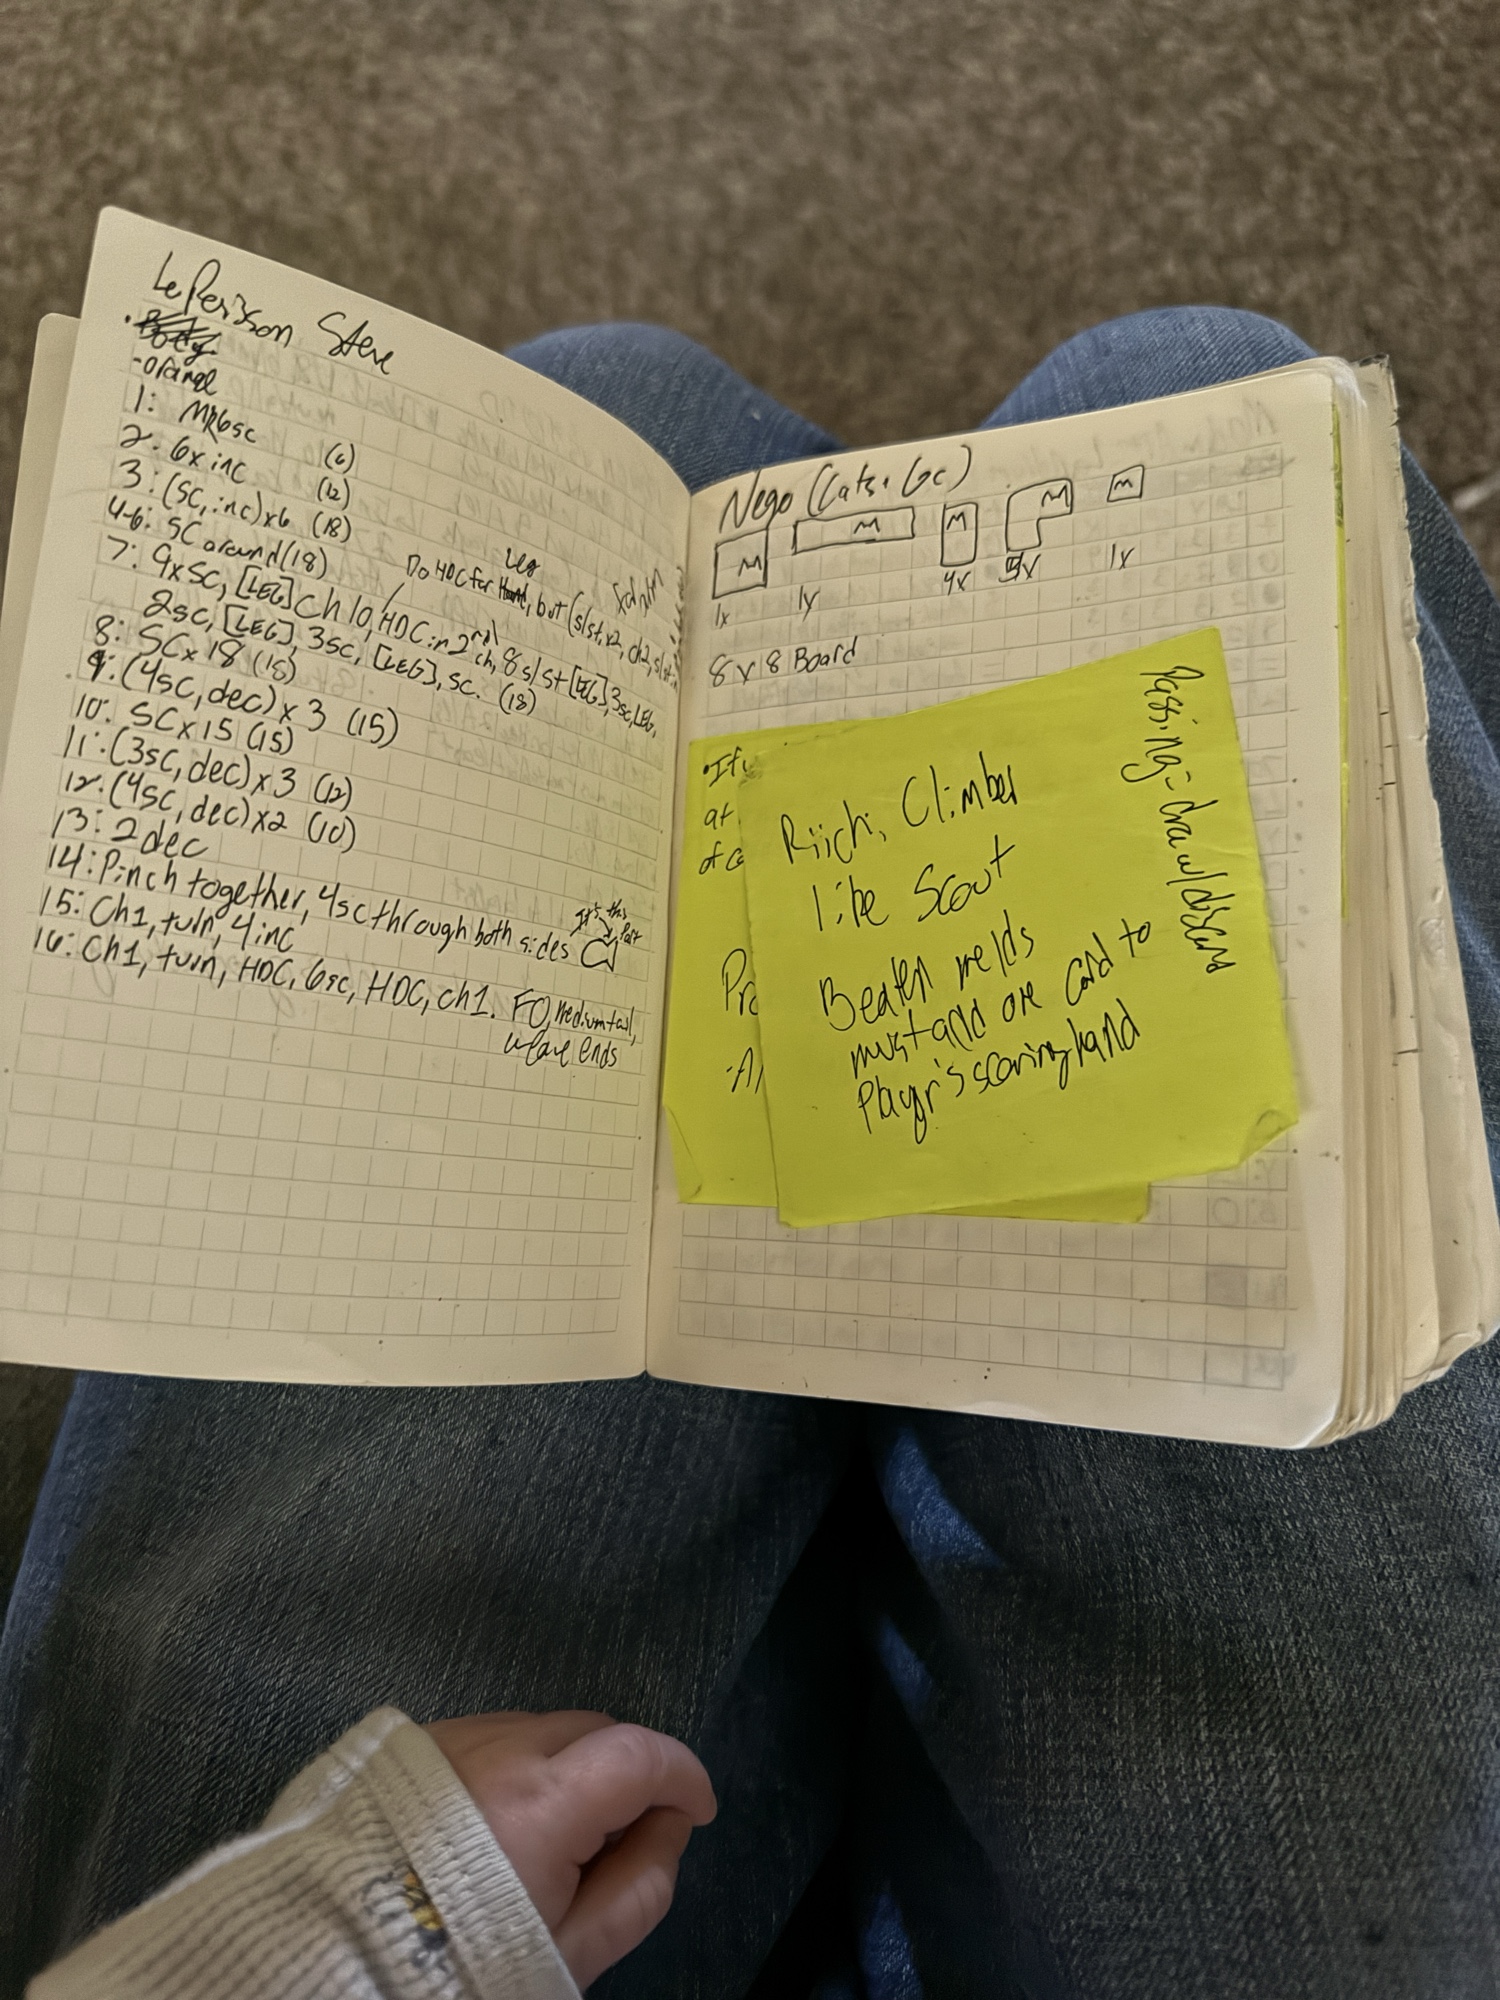 LePerisson Steve
-orange
1: MR6sc (6)
2: 6x inc (12)
3: (SC, inc) x6 (18)
4-6: SC around (18)
Leg
Do HDC for, but (slst, x2, ch2, slst
7: 9xSC, [LEG] Ch 10, HDC in 2nd ch, 8 slst [LEG], 3sc, LEG,
2sc, [LEG], 3sc, [LEG], sc. (18)
8: SC x 18 (18)
9: (4sc, dec) x 3 (15)
10: SC x 15 (15)
11: (3sc, dec) x 3 (12)
12: (4sc, dec) x2 (10)
13: 2 dec
14: Pinch together, 4sc through both sides
It's this
Part
15: Ch1, turn, 4inc
16: Ch1, turn, HDC, 6sc, HDC, ch1. FO, medium tail,
weave ends
Nego (Cats, Gc)
M M M M M
1x 1x 4x 1x
8 x 8 Board
•If
at
of
Pro
-A
Riichi, Climber
like Scout
Beaten melds
must add one card to
Player's scoring hand
Passing = draw/discard